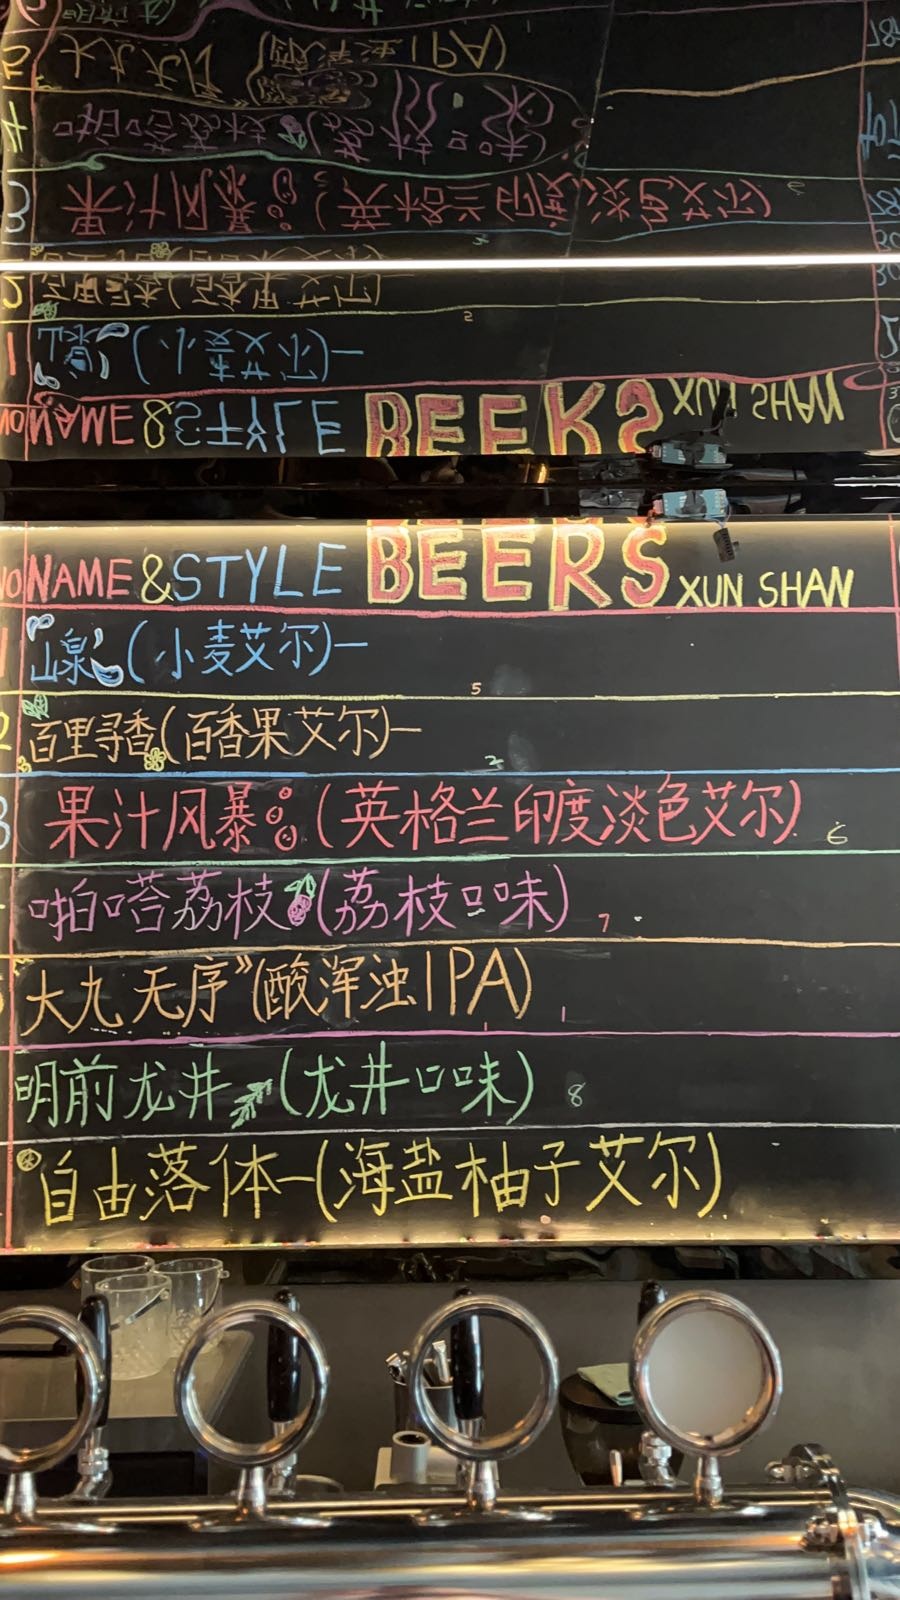 NO NAME & STYLE BEERS XUN SHAN
1 山泉 (小麦艾尔)—
5
2 百里寻香(百香果艾尔)—
2
3 果汁风暴:(英格兰印度淡色艾尔) 6
啪嗒荔枝(荔枝口味) 7
大九无序"(酸浑浊IPA) 1
明前龙井 (龙井口味) 8
自由落体—(海盐柚子艾尔)